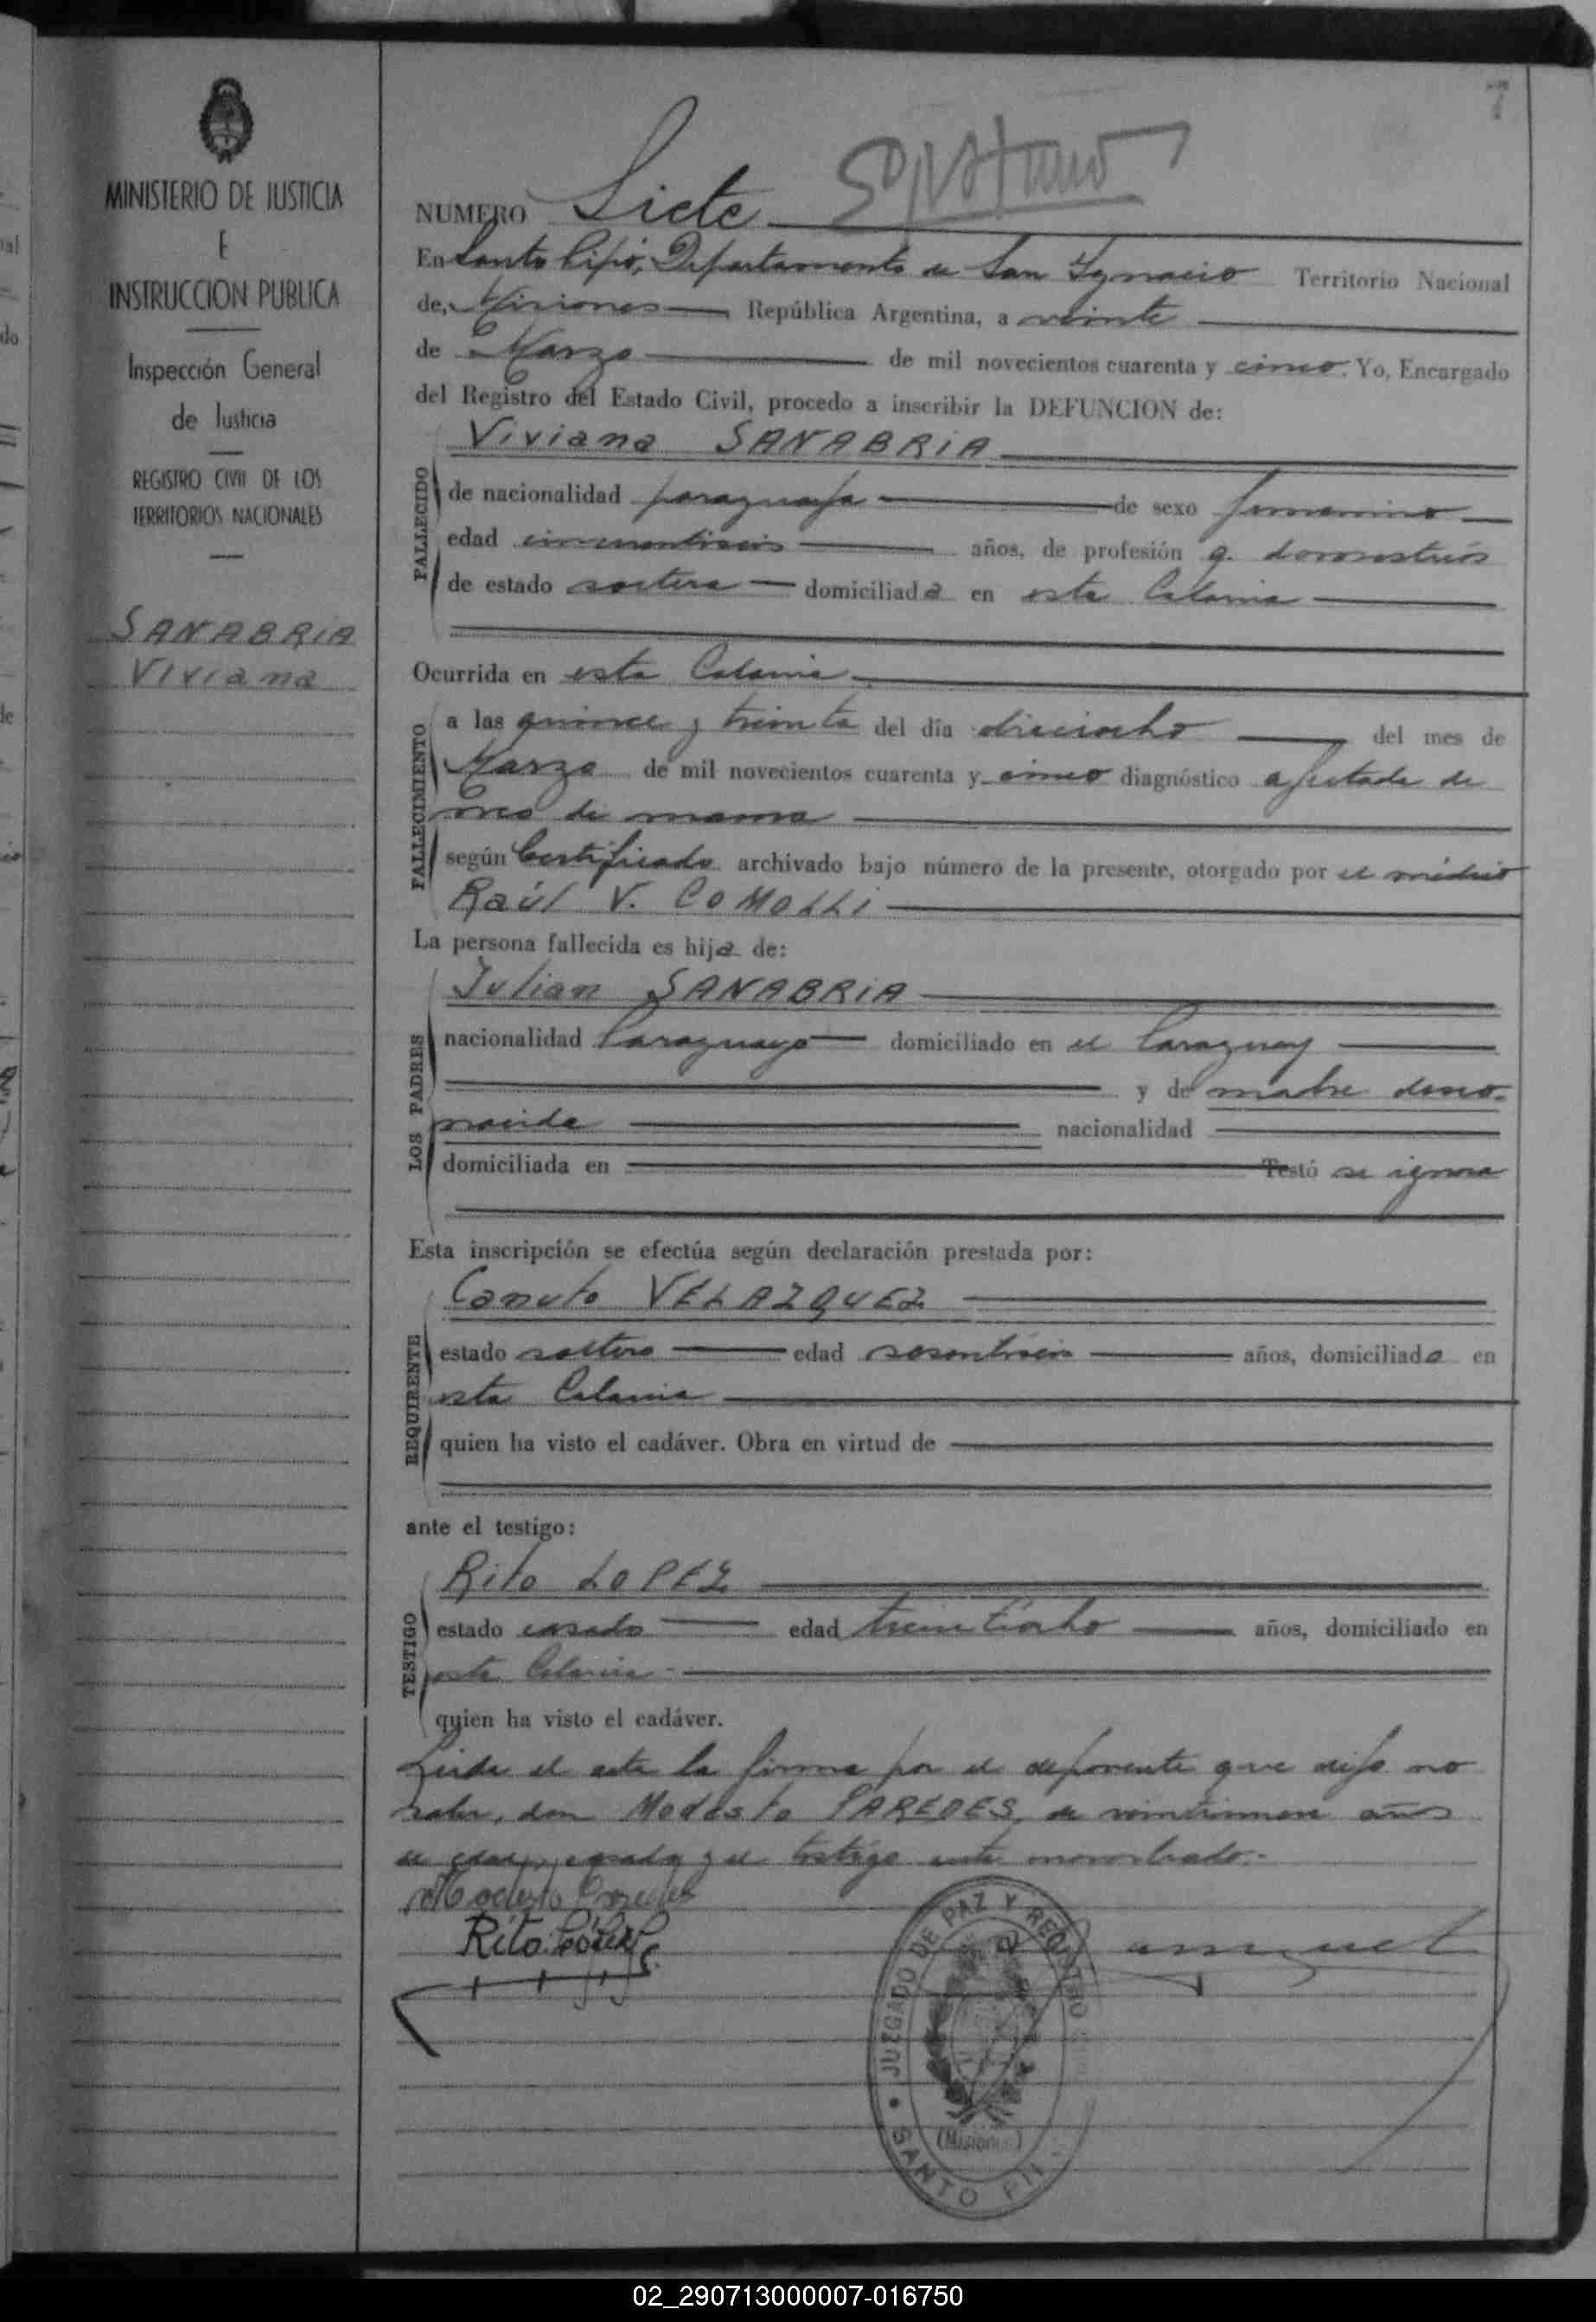 7
MINISTERIO DE JUSTICIA
E
INSTRUCCION PUBLICA
Inspección General
de Justicia
REGISTRO CIVIL DE LOS
TERRITORIOS NACIONALES
SANABRIA
Viviana
NUMERO Siete
En Santo Pipó, Departamento de San Ignacio Territorio Nacional
de Misiones República Argentina, a veinte
de Marzo de mil novecientos cuarenta y cinco. Yo, Encargado
del Registro del Estado Civil, procedo a inscribir la DEFUNCION de:
Viviana SANABRIA
FALLECIDO
de nacionalidad paraguaya de sexo femenino
edad cincuentiseis años, de profesión q. domesticos
de estado soltera domiciliada en esta Colonia
Ocurrida en esta Colonia
FALLECIMIENTO
a las quince y treinta del día dieciocho del mes de
Marzo de mil novecientos cuarenta y cinco diagnóstico afectada de
de mama
según Certificado archivado bajo número de la presente, otorgado por el médico
Raúl V. COMOLLI
La persona fallecida es hija de:
Julian SANABRIA
LOS PADRES
nacionalidad Paraguayo domiciliado en el Paraguay
y de madre desco-
nocida nacionalidad
domiciliada en Testó se ignora
Esta inscripción se efectúa según declaración prestada por:
Canuto VELAZQUEZ
REQUIRENTE
estado soltero edad sesentiseis años, domiciliado en
esta Colonia
quien ha visto el cadáver. Obra en virtud de
ante el testigo:
Rito LOPEZ
TESTIGO
estado casado edad treintiocho años, domiciliado en
esta Colonia
quien ha visto el cadáver.
Leida el acta la firma por el deponente que dijo no
saber, don Modesto PAREDES, de veintinueve años
de edad, casado y el testigo ante nombrado.-
Modesto Paredes
Rito López
JUZGADO DE PAZ Y REGISTRO
(Misiones)
SANTO PI
02_290713000007-016750